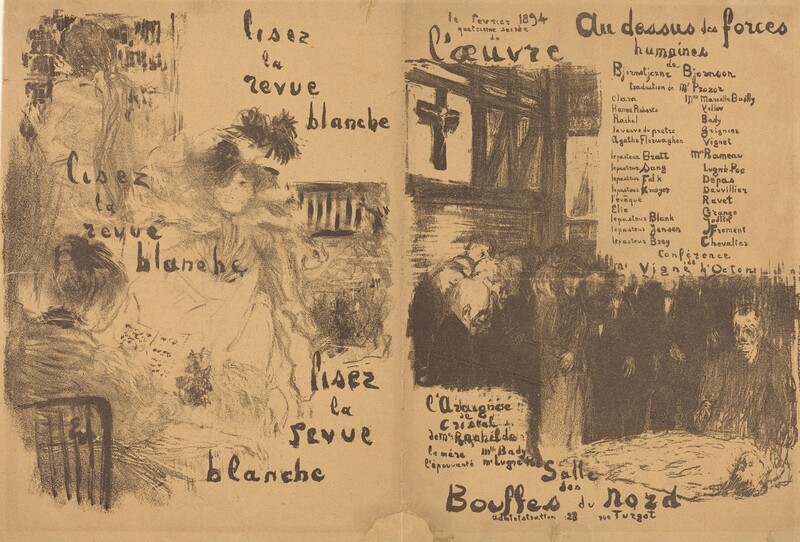 lisez
la
revue
blanche
lisez
la
revue
blanche
lisez
la
revue
blanche
le fevrier 1894
quatrieme soirée
de
l'œuvre
Au dessus des forces
humaines
de
Bjornstjerne Bjornson
traduction de Mr Prozor
Clara Mmes Marcelle Bailly
Hanna Roberts
Rachel Bady
la veuve du pretre Grignier
Agathe Florwaghen Vignet
le pasteur Bratt Mrs Rameau
le pasteur Sang Lugné-Poe
le pasteur Falk Dépas
le pasteur Kroyer Dauvillier
l'évêque Ravet
Elie Grange
le pasteur Blank
le pasteur Jensen Froment
le pasteur Brey Chevalier
Conférence
de
Mr Vigné d'Octon
l'Araignée
de
Cristal
de Me Rachilde
la mère Mlle Bady
l'épouvanté Mr Lugné
Salle
des
Bouffes du Nord
administration : 23 rue Turgot